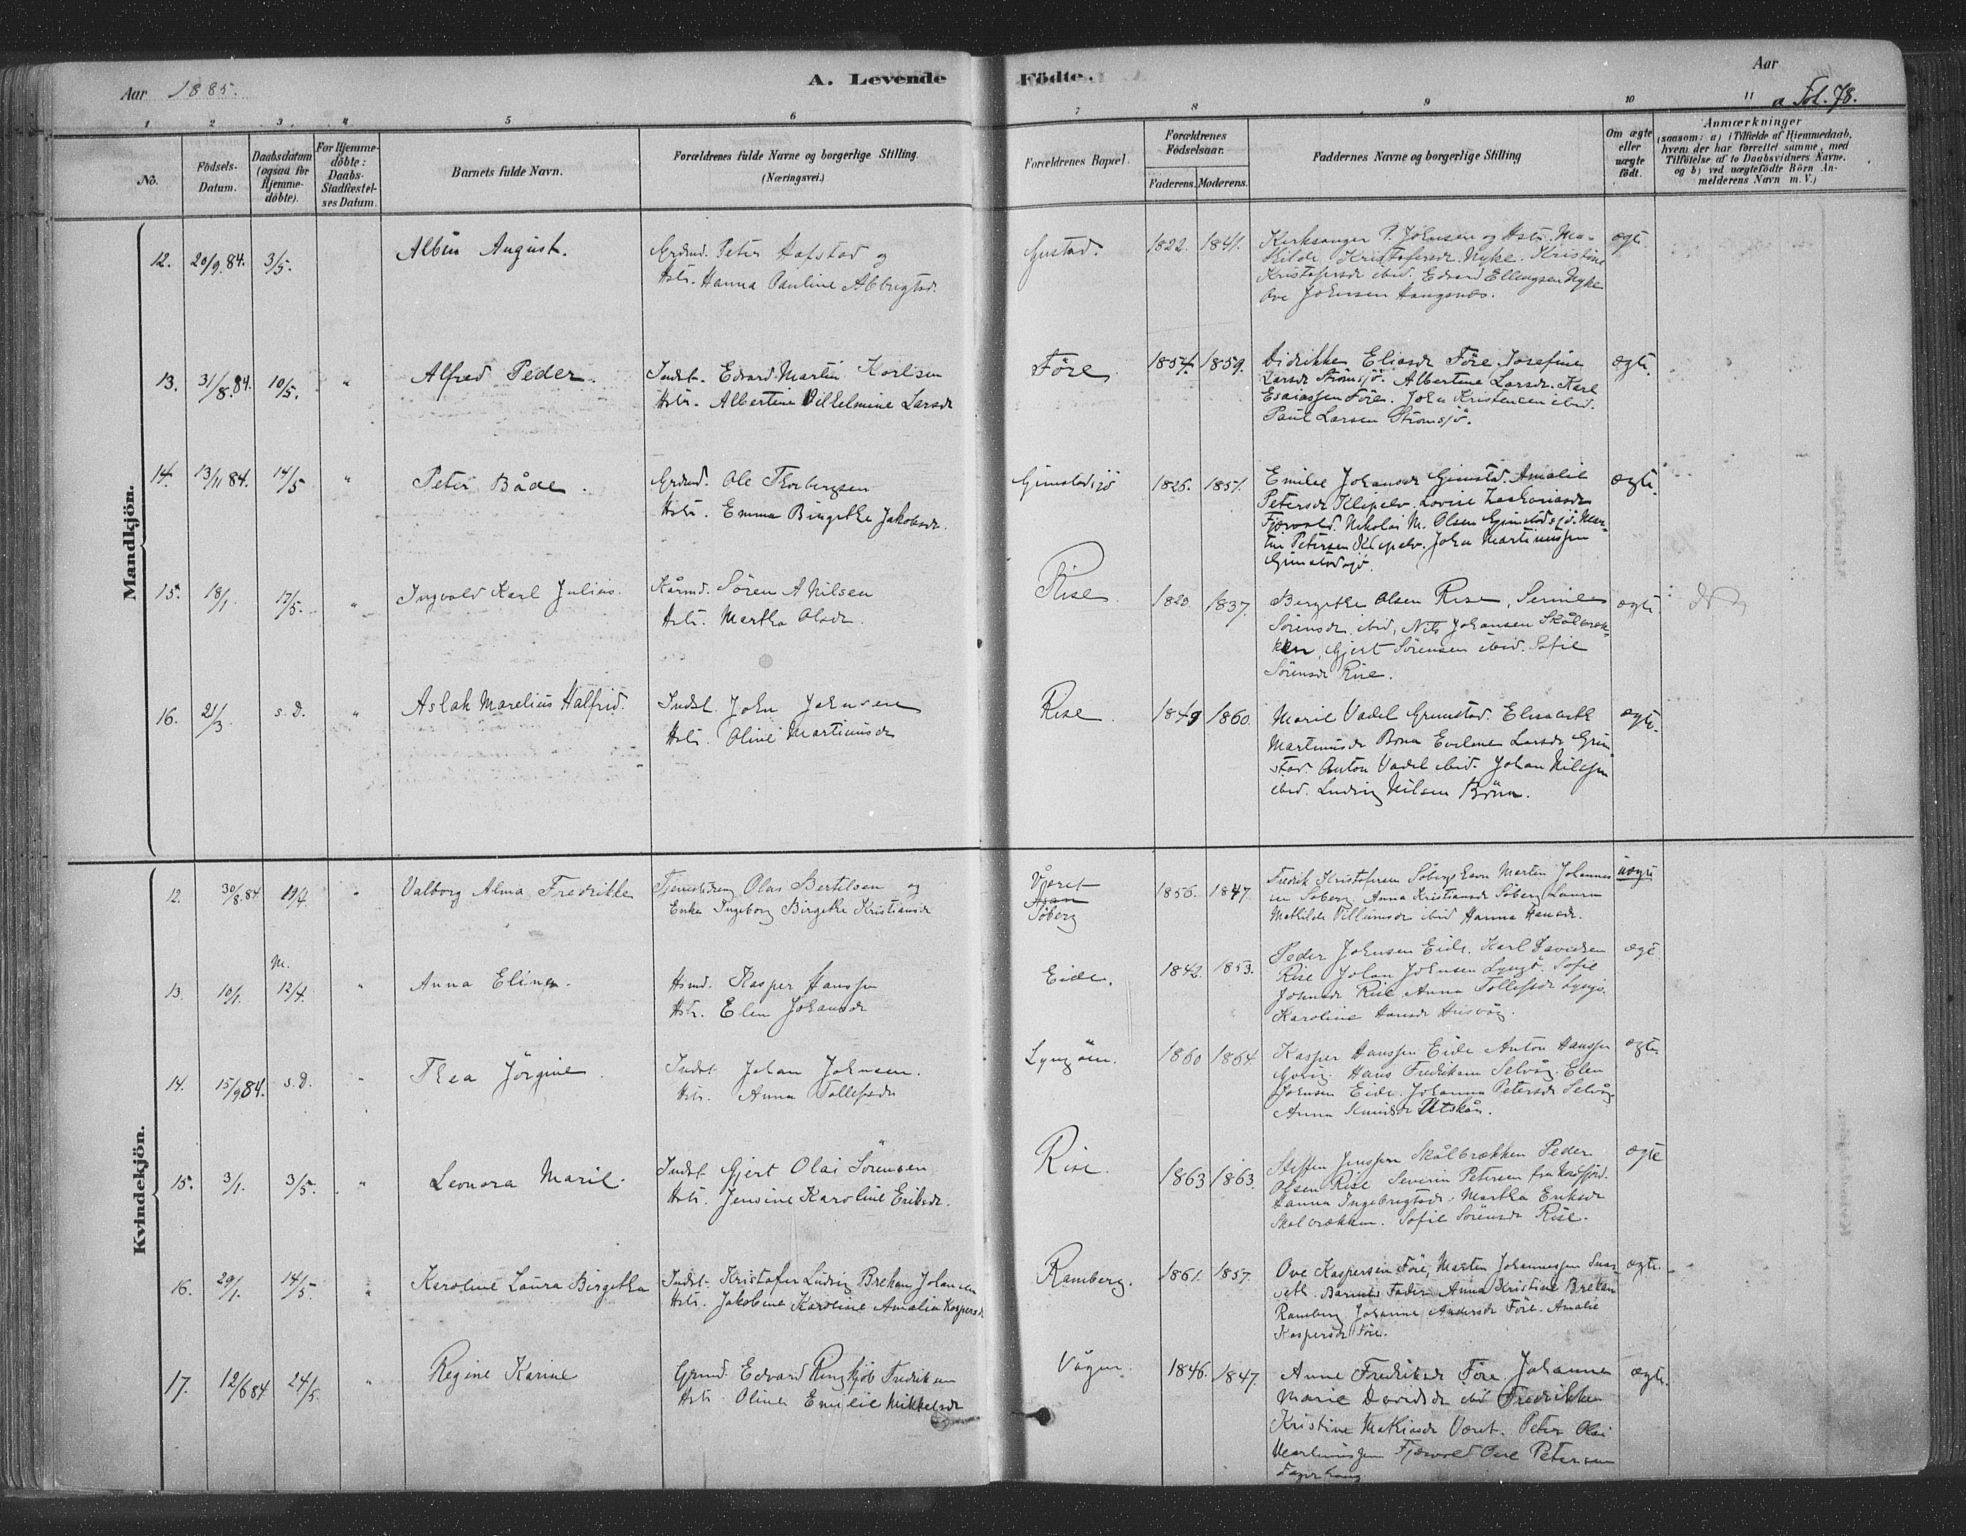 Aar 1885.
A. Levende Födte.
Aar
a Fol. 78.
1 2 3 4 5 6 7 8 9 10 11
No.
Födsels-Datum.
Daabsdatum (ogsaa for Hjemmedöbte).
For Hjemmedöbte: Daabs-Stadfæstelses Datum.
Barnets fulde Navn.
Forældrenes fulde Navne og borgerlige Stilling. (Næringsvei.)
Forældrenes Bopæl.
Forældrenes Födselsaar.
Faderens. Moderens.
Faddernes Navne og borgerlige Stilling
Om ægte eller uægte födt.
Anmærkninger
(saasom: a) i Tilfælde af Hjemmedaab, hvem der har forrettet samme, med Tilföielse af to Daabsvidners Navne. og b) ved uægtefödte Börn Anmelderens Navn m. V.)
Mandkjön.
12. 20/9 84. 3/5. Albin August.
Peter Hofstad og
Hstr. Hanna Pauline
1822. 1841.
Kirksanger P. Johnsen og Hstr. Ma-
Kristofersdr. Nyke. Kristine
Kristofersdr. ibid. Edvard Ellingsen Nyke
Ove Johnsen
ægte
13. 31/8.84. 10/5. " Alfred Peder.
Indst. Edvard Martin Karlsen
Hstr. Albertine Vilhelmine Larsdr
Före.
1854. 1859.
Didrikke Eliasdr Före. Josefine
Larsdr Strömsjö. Albertine Larsdr. Karl
Esaiassen Före. John Kristensen ibid.
Paul Larsen Strömsjö.
ægte.
14. 13/11 84. 14/5 " Peter Både.
Ole Thorbergsen
Hstr. Emma Birgitha Jakobsdr.
Grimstadsjö
1825. 1851.
Emilie Johansdr Grimstad. Amalie
Petersdr Klipelv. Lovise Zachariasdr
Fjærvold. Nikolai M. Olsen Grimstadsjö. Mar-
tin Petersen Klipelv. John Martinussen
Grimstadsjö.
ægte.
15. 18/1. 17/5. " Ingvald Karl Julius.
Kårmd. Sören A Nilsen
Hstr. Martha Olsdr.
Rise.
1820. 1837.
Olsen Rise,
Sörensdr. ibid, Nils Johansen Skålbræk-
ken, Gjert Sörensen ibid. Sofie
Sörensdr Rise.
ægte.
16. 21/3. s. D. " Aslak Marelius Halfrid.
Indst. John Johnsen
Hstr. Oline Martinusdr
Rise
1849 1860.
Marie Vadel Grimstad. Elisabeth
Martinusdr Börn Eveline Larsdr Grim-
stad. Anton Vadel ibid. Johan Nilsen
ibid. Ludvig Nilsen Börn.
ægte.
Kvindekjön.
12. 30/8.84 " Valborg Alma Fredrikke
Tjenestedreng Olus Bertilsen og
Enke Ingeborg Birgithe Kristiansdr
Været
Söberg
1856. 1847.
Fredrik Kristofersen Söberg. Martin Johannes-
en Söberg. Anna Kristiansdr Söberg Laura
Mathilde ibid Hanna Hansdr.
uægte
13. 10/1. 12/4. " Anna Elina.
Hsmd. Kasper Hanssen
Hstr. Elen Johansdr
Eide.
1842. 1853.
Peder Johnsen Eide. Karl Davidsen
Rise Johan Johnsen Lyngö. Sofie
Johnsdr Rise Anna Tollefsdr Lyngö.
Karoline Hansdr
ægte
14. 15/9 84. s. D. " Thea Jörgine.
Indst Johan Johnsen.
Hstr. Anna Tollefsdr
Lyngöen.
1860 1864
Kasper Hanssen Eide Anton Hanssen
Hans Fredriksen Selvåg. Elen
Johnsen Eide. Johanna Petersdr Selvåg
Anna Utskår.
ægte.
15. 3/1. 3/5. " Leonora Marie.
Indst. Gjert Olai Sörensen
Hstr. Jensine Karoline Eriksdr.
Rise.
1863 1863.
Steffen Jenssen Skålbrækken Peder
Olsen Rise Severin Petersen fra
Hanna Ingebrigtsdr. Martha Eriksdr
Skålbrækken. Sofie Sörensdr Rise.
ægte
16. 29/1. 14/5. " Karoline Laura Birgitha
Indst. Kristofer Ludvig Brekan Johansen
Hstr. Jakobine Karoline Amalia Kaspersdr
Ramberg.
1861. 1857.
Ove Kaspersen Före, Martin Johannessen
Barnets Fader Anna Kristine Brekan
Ramberg Johanne Andersdr Före. Amalie
Kaspersdr Före.
ægte.
17. 12/6 84 24/5. " Regine Karine
Edvard Ringkjöb Fredriksen
Hstr. Oline Emilie Mikkelsdr
Vågen.
1846. 1847.
Anne Fredriksdr Före. Johanne
Marie Davidsdr ibid Fredrikke
Kristine Mathiasdr Været. Peter Olai
Martinussen Fjærvold Ove Petersen
ægte.